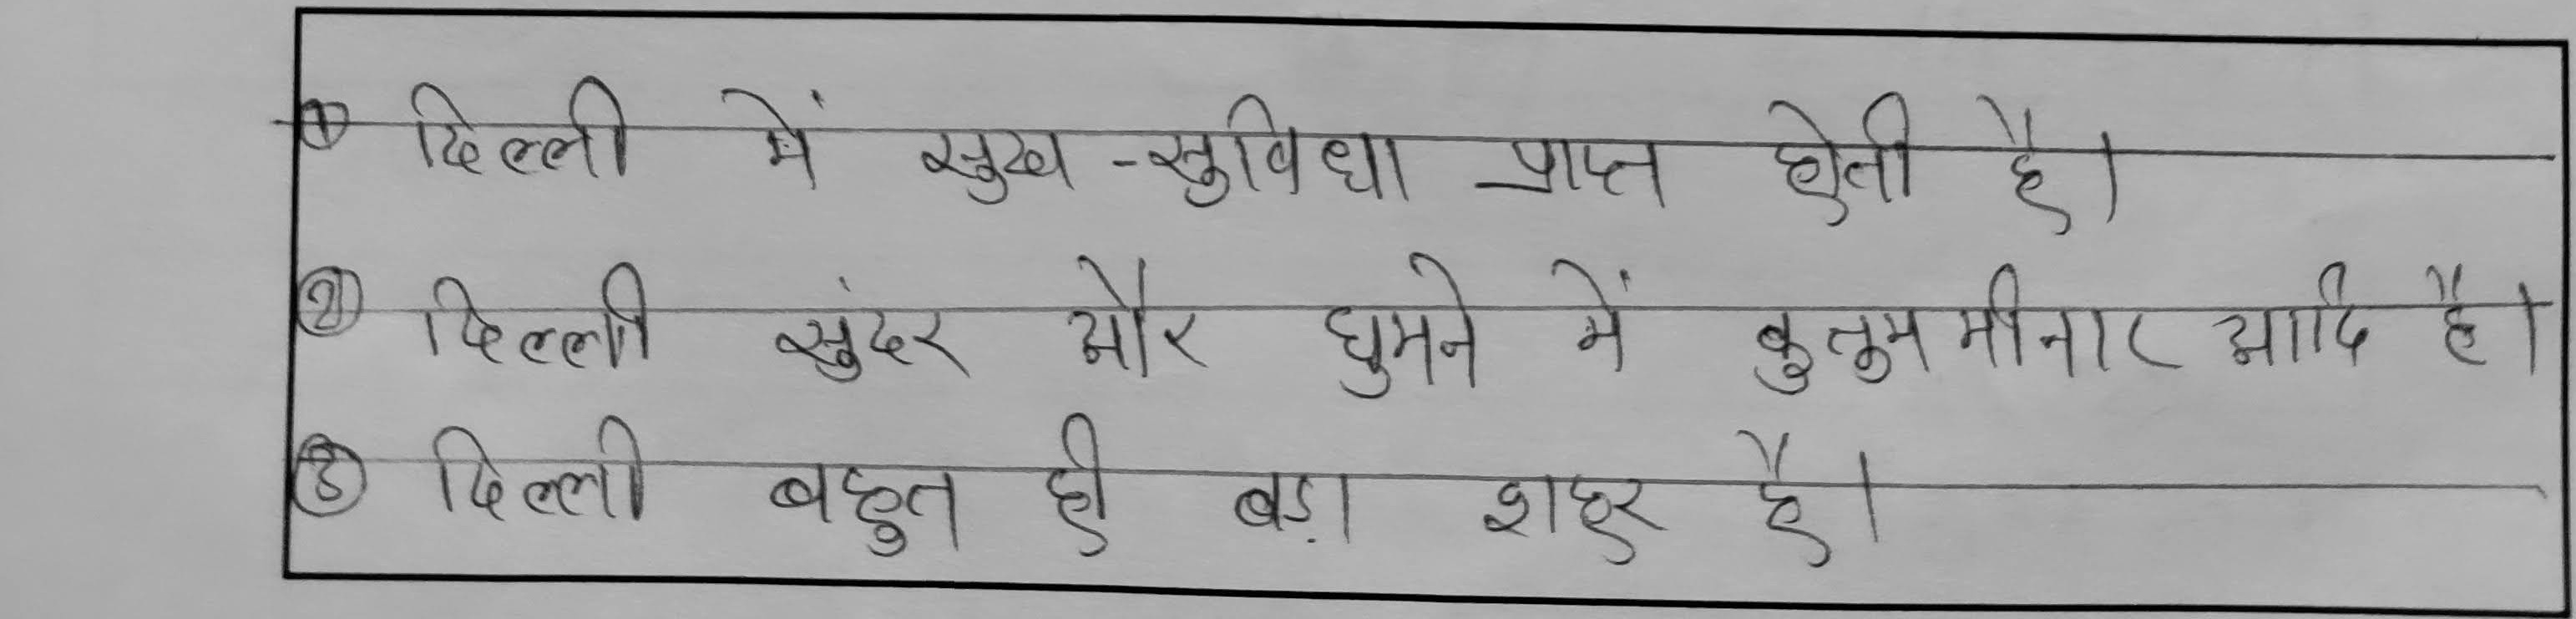 ① दिल्ली में सुख-सुविधा प्राप्त होती है।
② दिल्ली सुंदर और घुमने में कुतुम मीनार आदि है।
③ दिल्ली बहुत ही बड़ा शहर है।